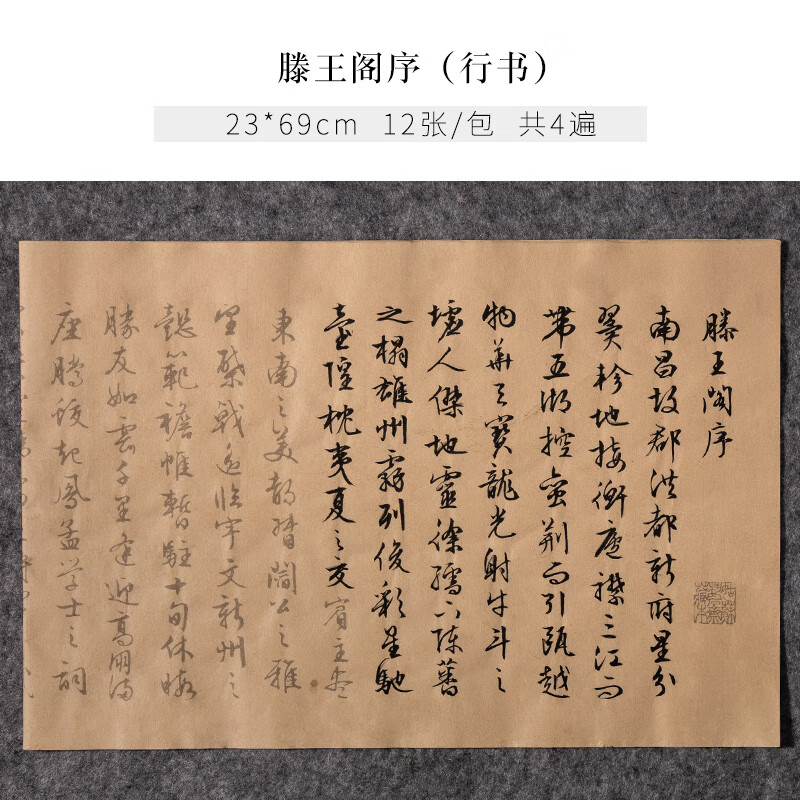 滕王阁序（行书）
23*69cm 12张/包 共4遍
滕王閣序
南昌故郡洪都新府星分
翼軫地接衡廬襟三江而
帶五湖控蛮荆而引甌越
物華天寶龍光射牛斗之
墟人傑地靈徐孺下陳蕃
之榻雄州霧列俊彩星馳
臺隍枕夷夏之交賓主盡
東南之美都督閻公之雅
望棨戟遥臨宇文新州之
懿範襜帷暫駐十旬休暇
勝友如雲千里逢迎高朋滿
座騰蛟起鳳孟学士之詞